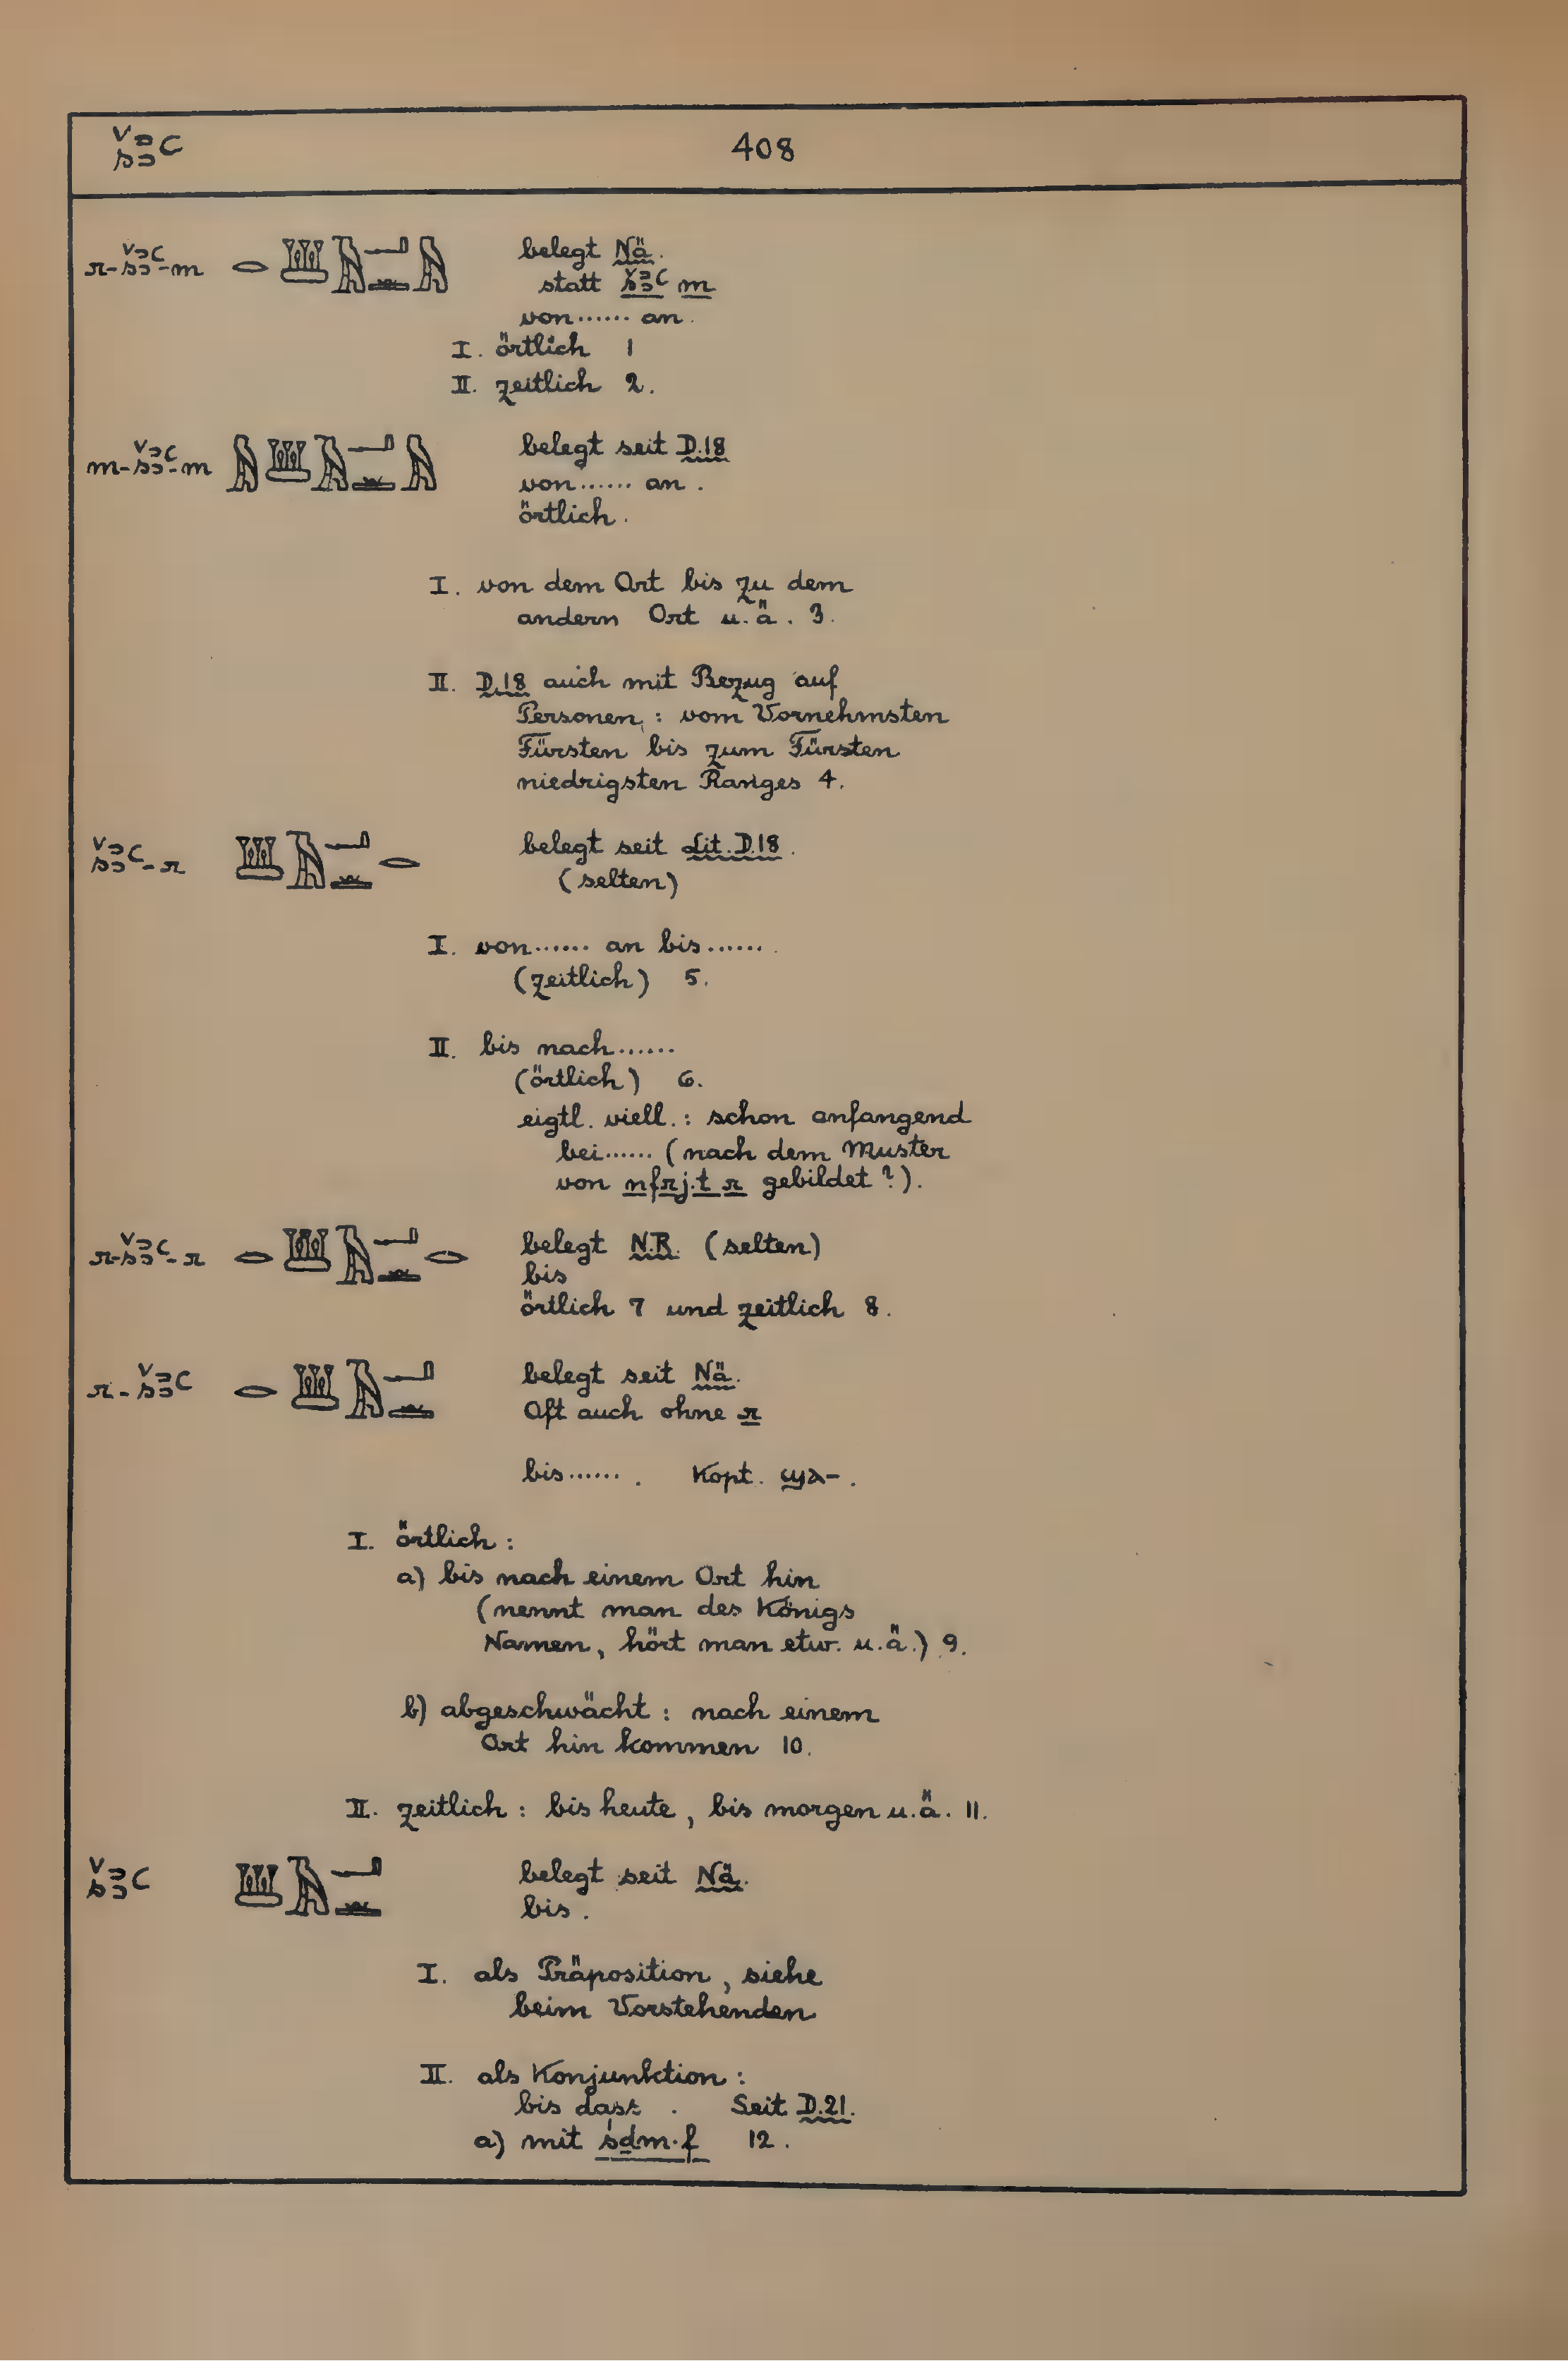 šꜣꜥ 408
r-šꜣꜥ-m 𓂋𓆷𓄿𓂝𓏛𓅓 belegt Nä.
statt šꜣꜥ m
von...... an.
I. örtlich 1
II. zeitlich 2.
m-šꜣꜥ-m 𓅓𓆷𓄿𓂝𓏛𓅓 belegt seit D.18
von...... an.
örtlich.
I. von dem Ort bis zu dem
andern Ort u.ä. 3.
II. D.18 auch mit Bezug auf
Personen: vom Vornehmsten
Fürsten bis zum Fürsten
niedrigsten Ranges 4.
šꜣꜥ-r 𓆷𓄿𓂝𓏛𓂋 belegt seit Lit. D.18.
(selten)
I. von...... an bis.......
(zeitlich) 5.
II. bis nach......
(örtlich) 6.
eigtl. viell.: schon anfangend
bei...... (nach dem Muster
von nfrj.t r gebildet?).
r-šꜣꜥ-r 𓂋𓆷𓄿𓂝𓏛𓂋 belegt N.R. (selten)
bis
örtlich 7 und zeitlich 8.
r-šꜣꜥ 𓂋𓆷𓄿𓂝𓏛 belegt seit Nä.
Oft auch ohne r
bis...... . Kopt. ϣⲁ-.
I. örtlich:
a) bis nach einem Ort hin
(nennt man des Königs
Namen, hört man etw. u.ä.) 9.
b) abgeschwächt: nach einem
Ort hin kommen 10.
II. zeitlich: bis heute, bis morgen u.ä. 11.
šꜣꜥ 𓆷𓄿𓂝𓏛 belegt seit Nä.
bis.
I. als Präposition, siehe
beim Vorstehenden
II. als Konjunktion:
bis dass. Seit D.21.
a) mit śḏm.f 12.